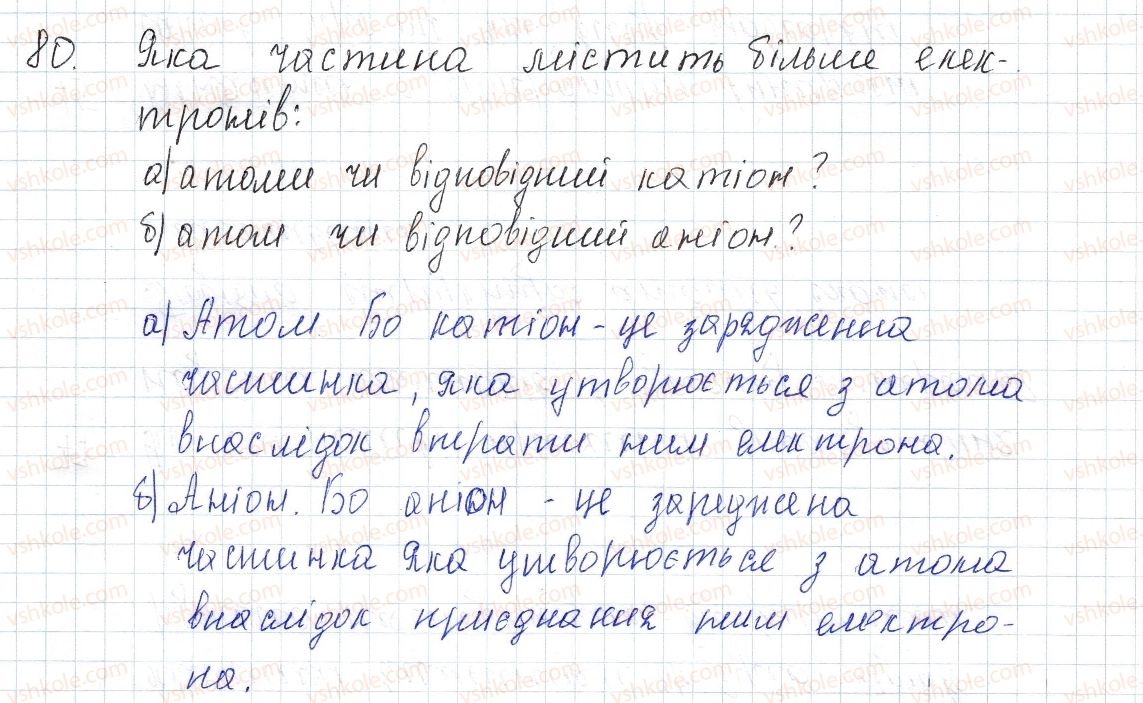 80. Яка частина містить більше елек-
тронів:
а) атоми чи відповідний катіон?
б) атом чи відповідний аніон?
а) Атом Бо катіон - це зарядженна
частинка, яка утворюється з атома
внаслідок втрати ним електрона.
б) Аніон. Бо аніон - це заряджена
частинка яка утворюється з атома
внаслідок приєднання ним електро-
на.